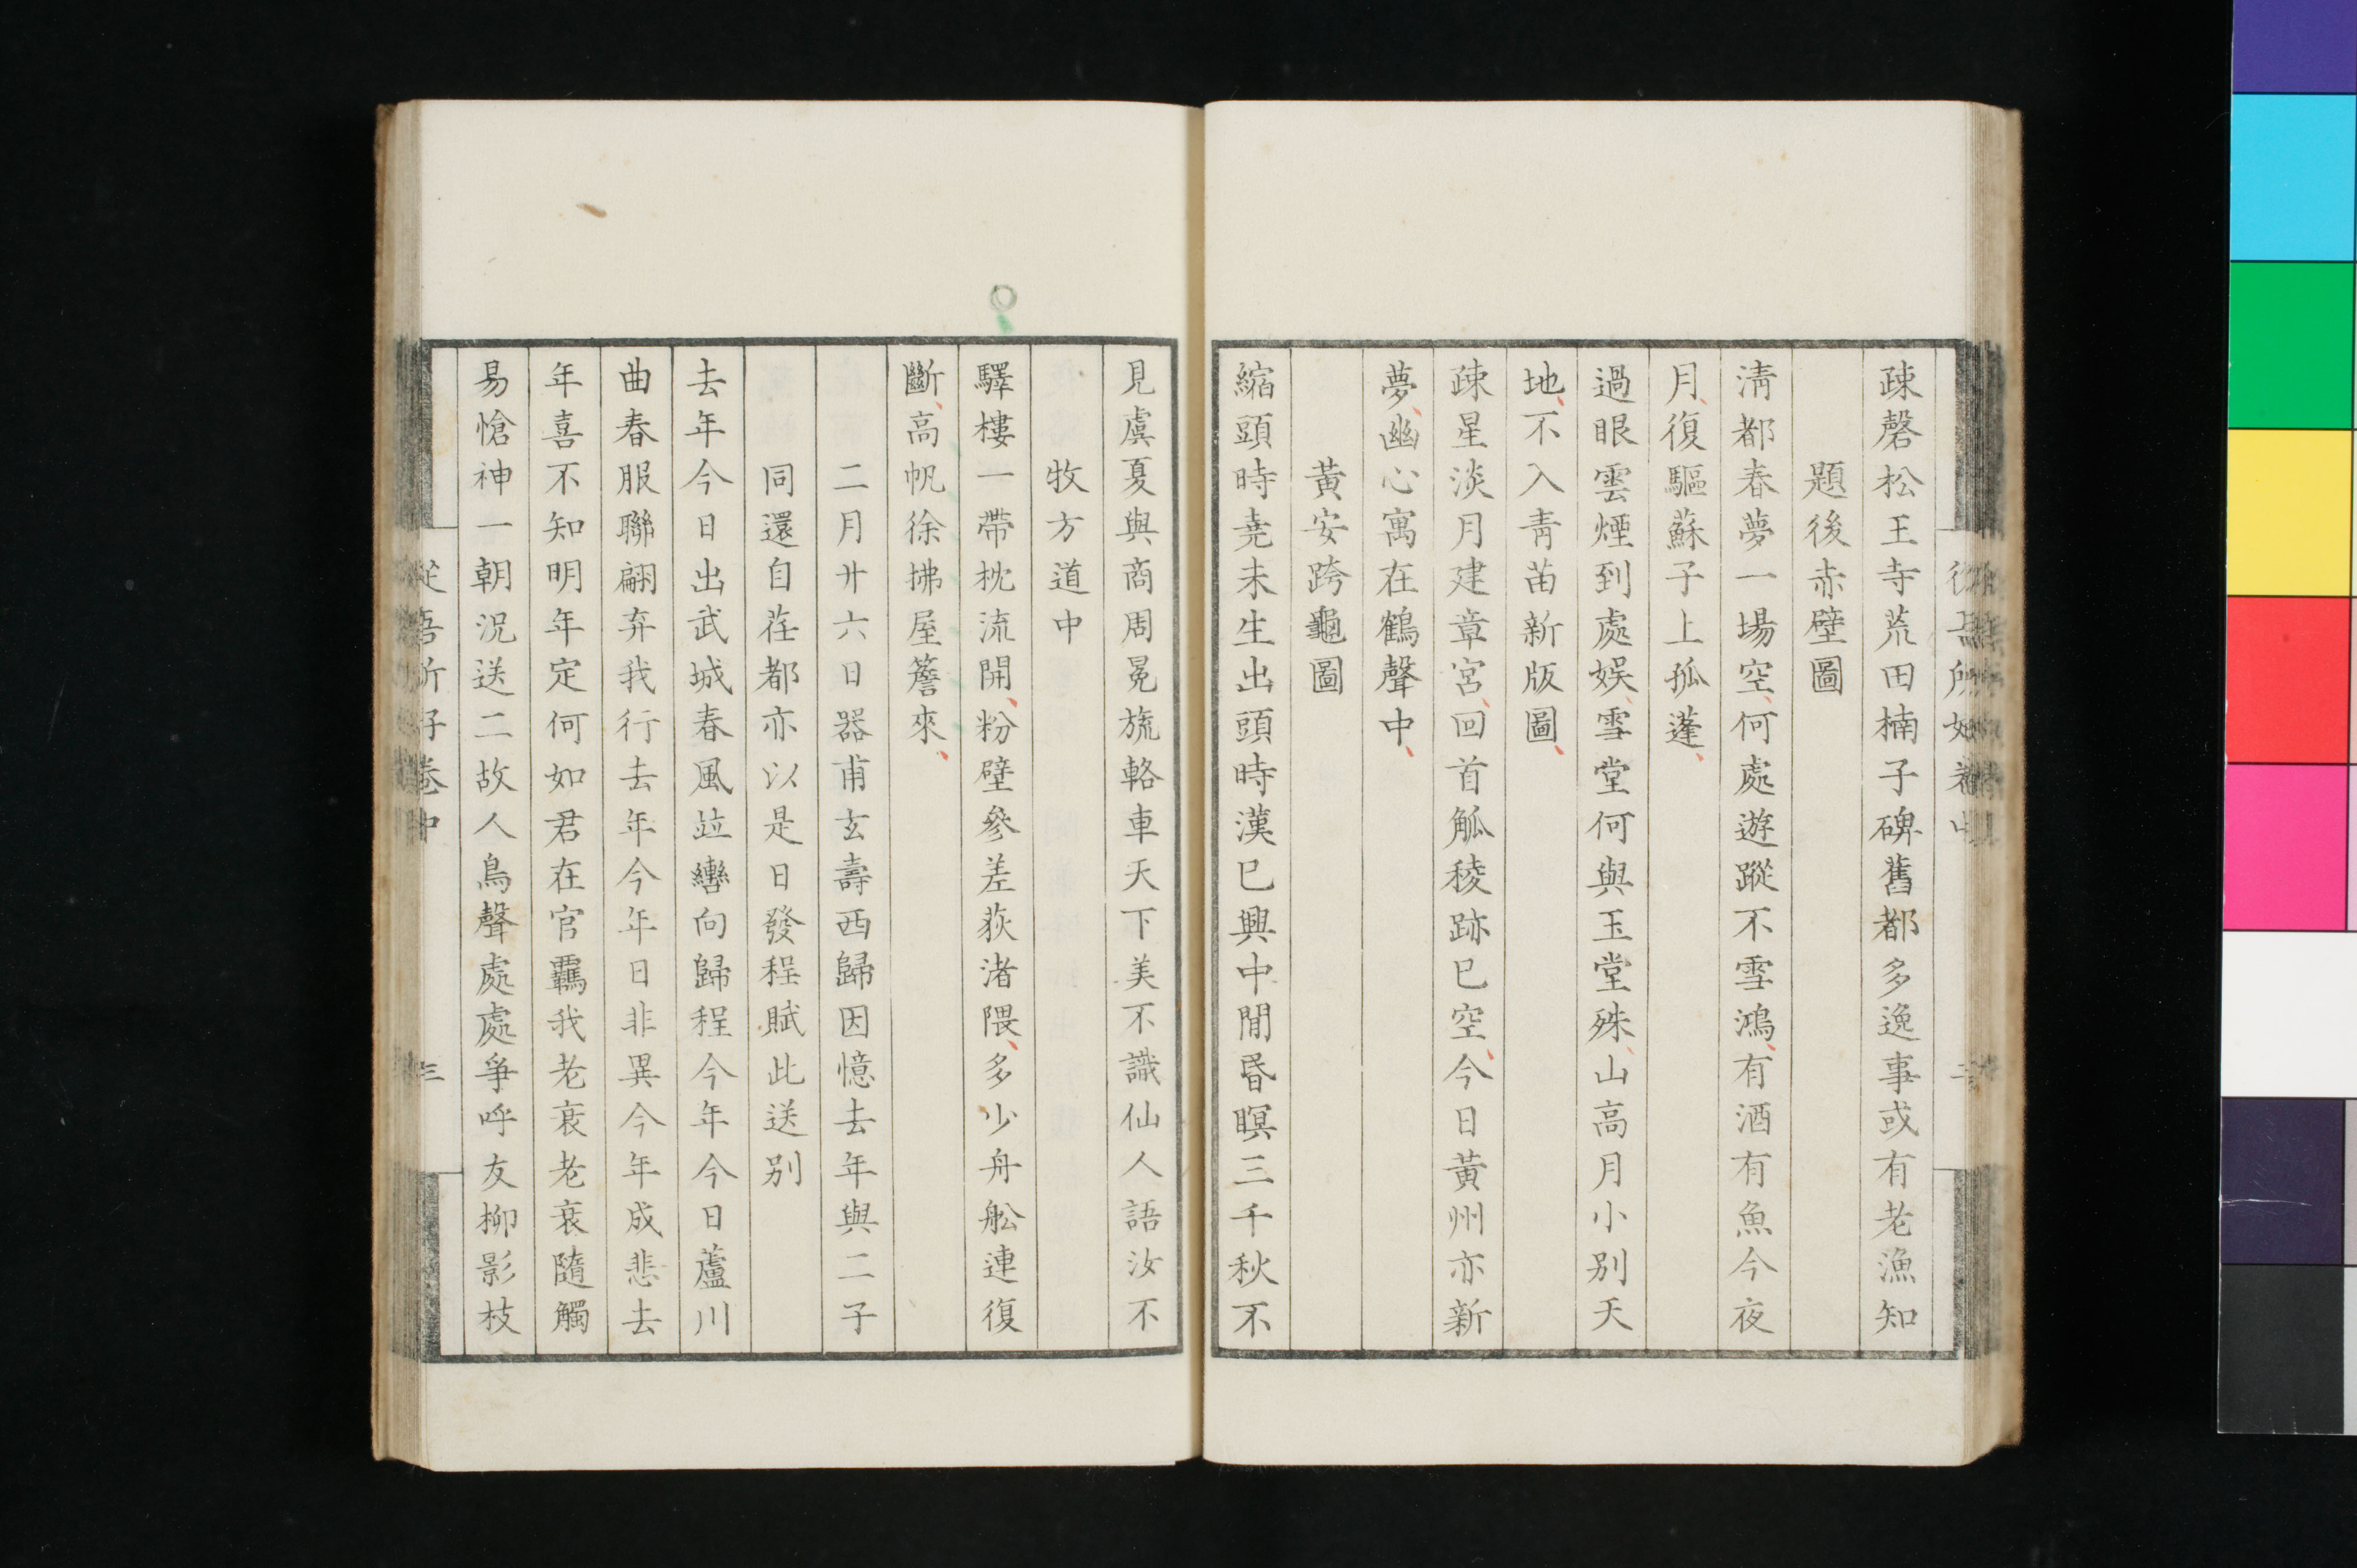 疎磬松王寺荒田楠子碑舊都多逸事或有老漁知
題後赤壁圖
淸都春夢一場空何處遊蹤不雪鴻有酒有魚今夜
月復驅蘇子上孤蓬
過眼雲煙到處娛雪堂何與玉堂殊山高月小別天
地不入靑苗新版圖
疎星淡月建章宮回首觚稜跡已空今日黃州亦新
夢幽心寓在鶴聲中
黃安跨龜圖
縮頭時堯未生出頭時漢已興中間昏暝三千秋不
見虞夏與商周冕旒輅車天下美不識仙人語汝不
牧方道中
驛樓一帶枕流開粉壁參差荻渚隈多少舟舩連復
斷高帆徐拂屋簷來
二月廾六日器甫玄壽西歸因憶去年與二子
同還自在都亦以是日發程賦此送別
去年今日出武城春風竝轡向歸程今年今日蘆川
曲春服聯翩弃我行去年今年日非異今年成悲去
年喜不知明年定何如君在官羈我老衰老衰隨觸
易愴神一朝況送二故人鳥聲處處爭呼友柳影枝
從吾所好卷中
三